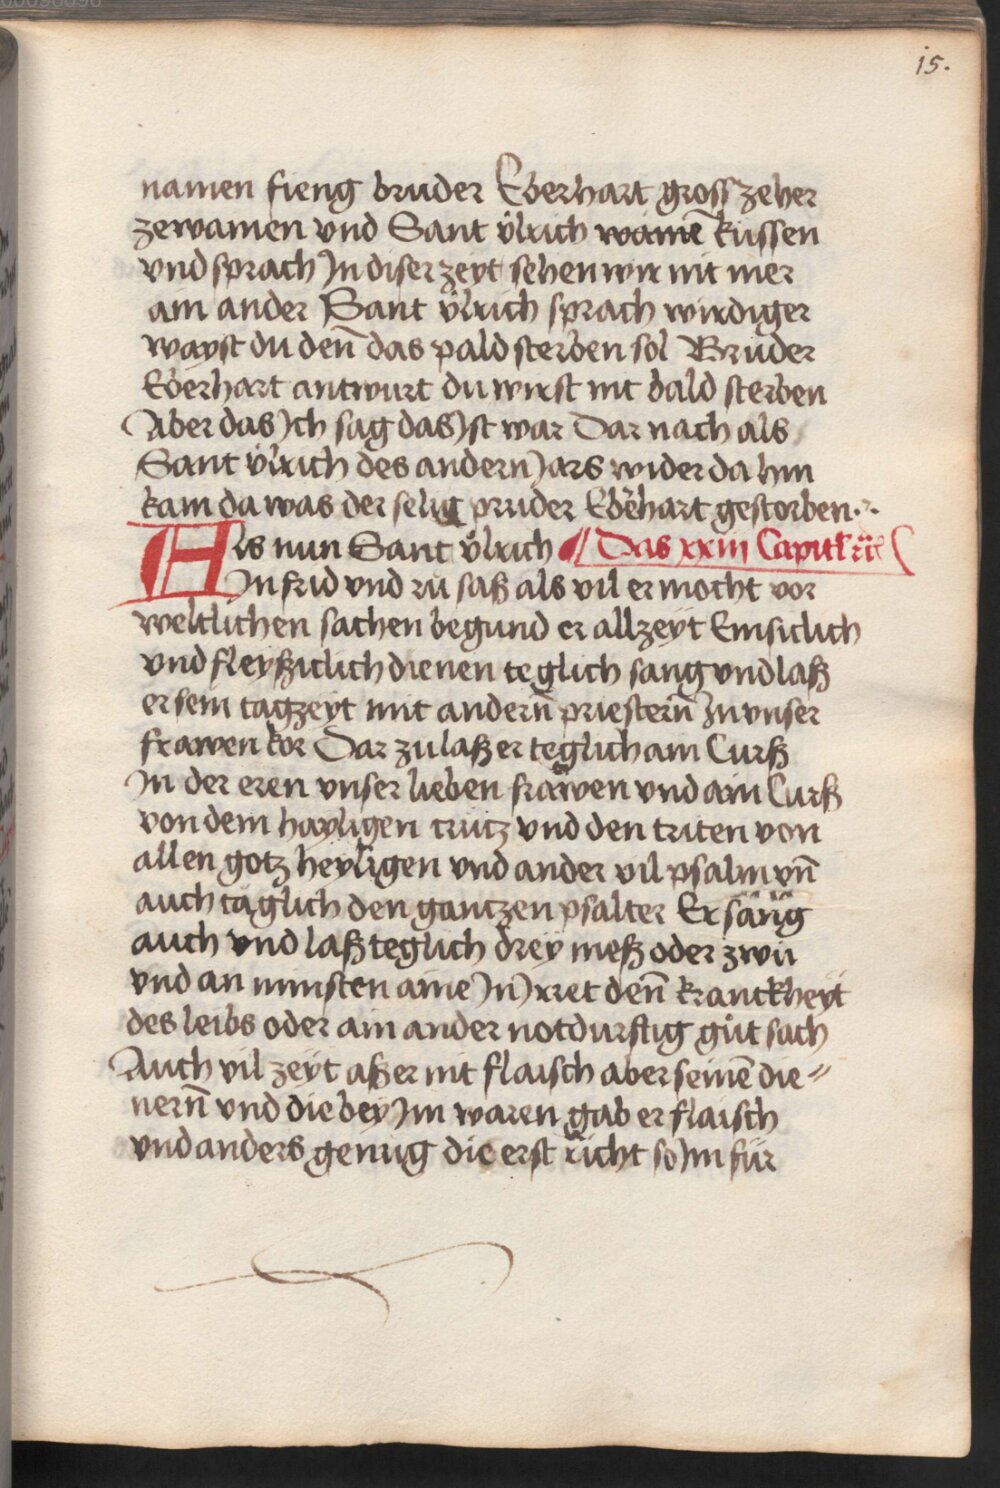 15.
namen fieng bruder Eberhart gross zeher
zewainen vnd Sant ůlrich wainē küssen
vnd sprach In diser zeyt sehen wir nit mer
ain ander Sant ůlrich sprach wirdiger
wayst du deñ das pald sterben sol Brůder
Eberhart antwurt du wirst nit bald sterben
Aber das Ich sag das Ist war Dar nach als
Sant ůlrich des andern Jars wider da hin
kam da was der selig pruder Ebēhart gestorben
Als nun Sant ůlrich Das xxiii Capitel
In frid vnd rů saß als vil er mocht vor
weltlichen sachen begund er allzeyt Emsiclich
vnd fleyßiclich dienen teglich sang vnd laß
er sein tagzeyt mit anderñ priesterñ In vnser
frawen kor Dar zu laß er teglich ain Curß
In der eren vnser lieben frawen vnd ain Curß
von dem hayligen crutz vnd den triten von
allen gotz heyligen vnd ander vil psalm vñ
auch täglich den gantzen psalter Er sang
auch vnd laß teglich drey meß oder zwů
vnd an minsten aine In Irret deñ kranckheyt
des leibs oder ain ander notdurftig gůt sach
Auch vil zeyt aß er nit flaisch aber seinē die=
nerñ vnd die bey Im waren gab er flaisch
vnd anders genug die erst richt so Im für